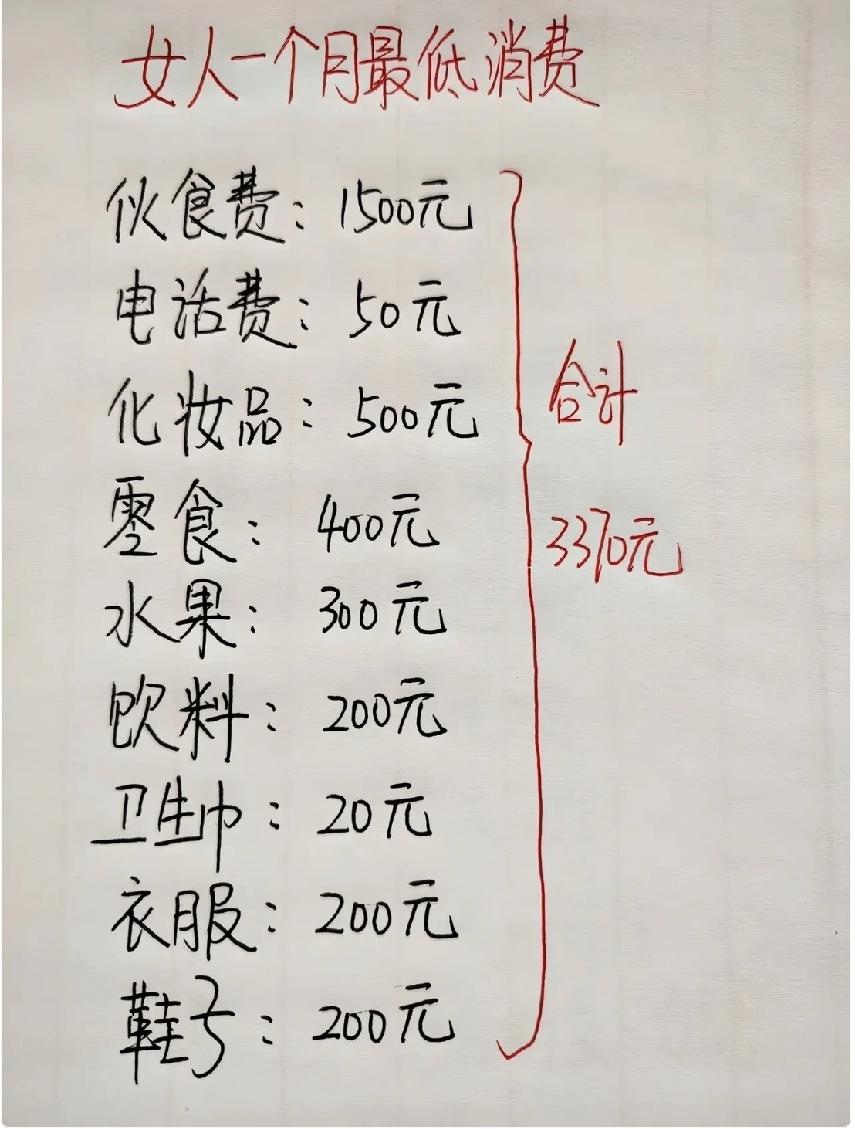 女人一个月最低消费
伙食费：1500元
电话费：50元
化妆品：500元
零食：400元
水果：300元
饮料：200元
卫生巾：20元
衣服：200元
鞋子：200元
合计
3370元